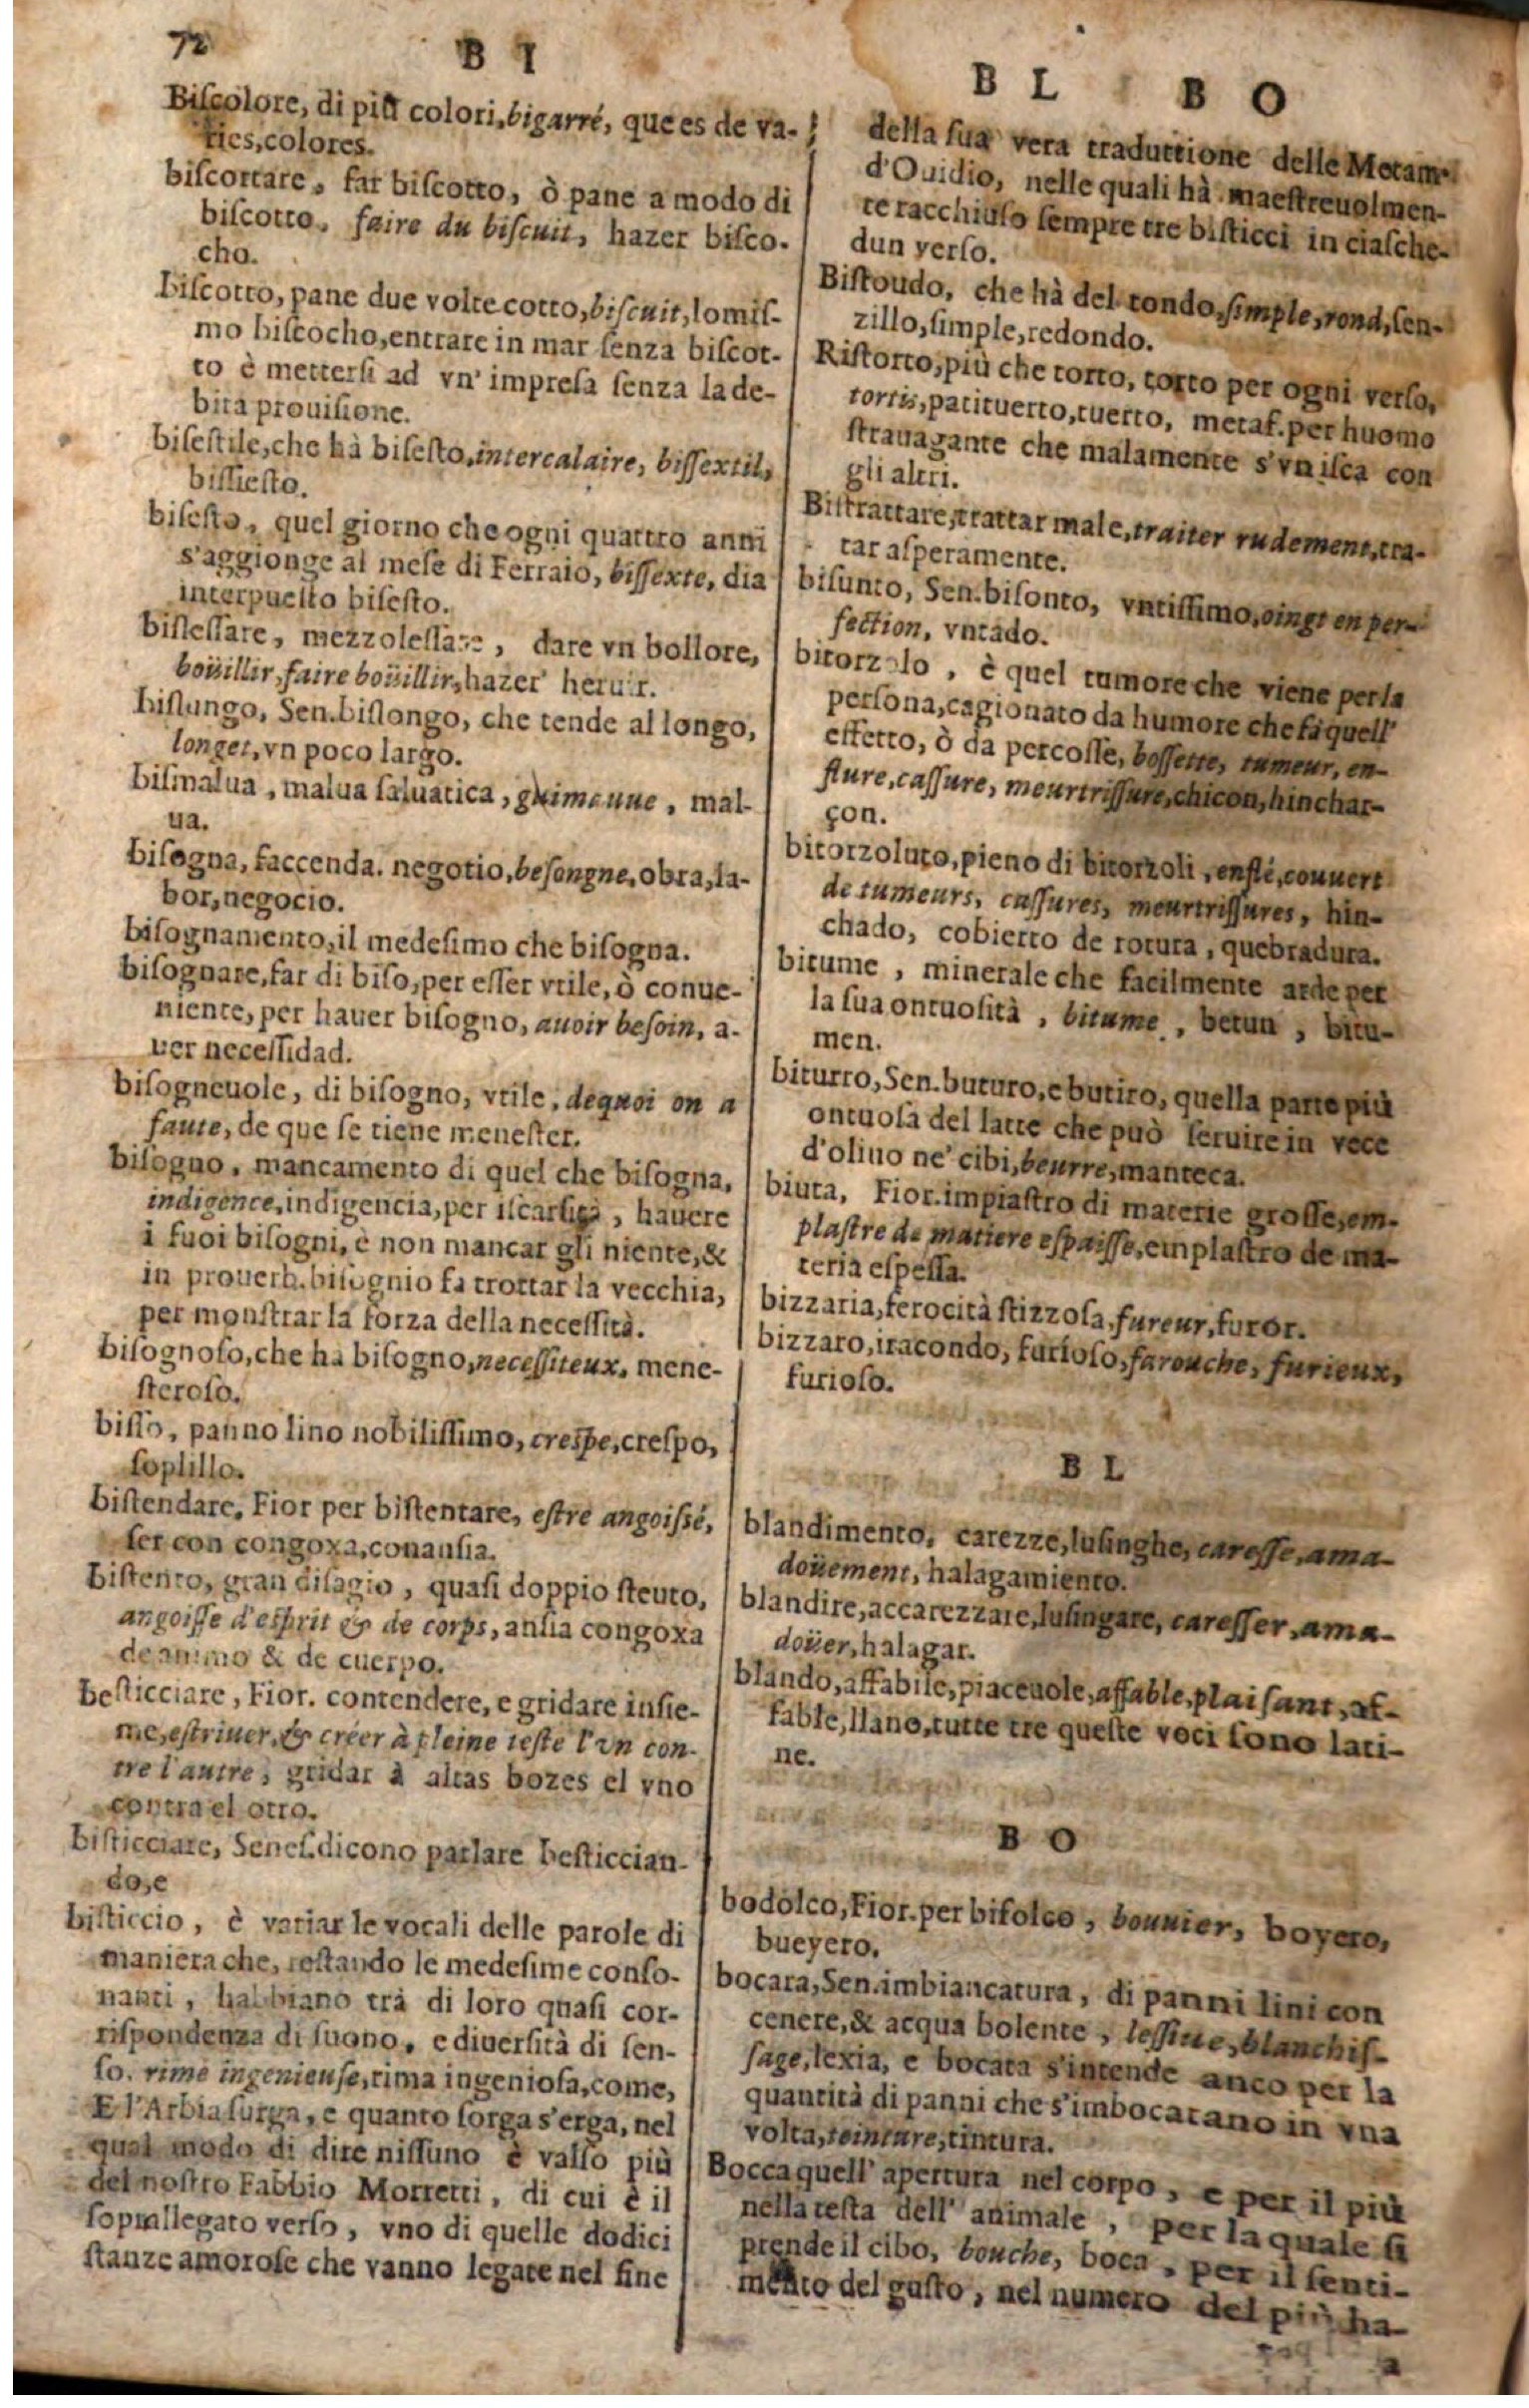 72
B I
Biſcolore, di più colori, bigarré, que es de va-
ries, colores.
biſcottare, far biſcotto, ò pane a modo di
biſcotto, faire du biſcuit, hazer biſco-
cho.
Biſcotto, pane due volte cotto, biſcuit, lo miſ-
mo biſcocho, entrare in mar ſenza biſcot-
to è metterſi ad vn' impreſa ſenza la de-
bita prouiſione.
biſeſtile, che hà biſeſto, intercalaire, biſſextil,
biſſieſto.
biſeſto, quel giorno che ogni quattro anni
s'aggionge al meſe di Ferraio, biſſexte, dia
interpueſto biſeſto.
biſleſſare, mezzoleſſare, dare vn bollore,
boüillir, faire boüillir, hazer heruir.
biſlungo, Sen. biſlongo, che tende al longo,
longet, vn poco largo.
biſmalua, malua ſaluatica, guimauue, mal-
ua.
biſogna, faccenda. negotio, beſongne, obra, la-
bor, negocio.
biſognamento, il medeſimo che biſogna.
biſognare, far di biſo, per eſſer vtile, ò conue-
niente, per hauer biſogno, auoir beſoin, a-
uer neceſſidad.
biſogneuole, di biſogno, vtile, dequoi on a
faute, de que ſe tiene meneſter.
biſogno, mancamento di quel che biſogna,
indigence, indigencia, per iſcarſità, hauere
i ſuoi biſogni, è non mancar gli niente, &
in prouerb. biſognio fa trottar la vecchia,
per monſtrar la forza della neceſſità.
biſognoſo, che hà biſogno, neceſſiteux, mene-
ſteroſo.
biſſo, panno lino nobiliſſimo, creſpe, creſpo,
ſoplillo.
biſtendare, Fior per biſtentare, eſtre angoiſſé,
ſer con congoxa, conanſia.
biſtento, gran diſagio, quaſi doppio ſtento,
angoiſſe d'eſprit & de corps, anſia congoxa
de animo & de cuerpo.
beſticciare, Fior. contendere, e gridare inſie-
me, eſtriuer, & créer à pleine teſte l'vn con-
tre l'autre, gridar à altas bozes el vno
contra el otro.
biſticciare, Seneſ. dicono parlare beſticcian-
do, e
biſticcio, è variar le vocali delle parole di
maniera che, reſtando le medeſime conſo-
nanti, habbiano trà di loro quaſi cor-
riſpondenza di ſuono, e diuerſità di ſen-
ſo. rime ingenieuſe, rima ingenioſa, come,
E l'Arbia ſurga, e quanto ſorga s'erga, nel
qual modo di dire niſſuno è valſo più
del noſtro Fabbio Morretti, di cui è il
ſoprallegato verſo, vno di quelle dodici
ſtanze amoroſe che vanno legate nel fine
B L B O
della ſua vera traduttione delle Metam.
d'Ouidio, nelle quali hà maeſtreuolmen-
te racchiuſo ſempre tre biſticci in ciaſche-
dun verſo.
Biſtoudo, che hà del tondo, ſimple, rond, ſen-
zillo, ſimple, redondo.
Riſtorto, più che torto, torto per ogni verſo,
tortis, patituerto, tuerto, metaf. per huomo
ſtrauagante che malamente s'vniſca con
gli altri.
Biſtrattare, trattar male, traiter rudement, tra-
tar aſperamente.
biſunto, Sen. biſonto, vntiſſimo, oingt en per-
fection, vntado.
bitorzolo, è quel tumore che viene per la
perſona, cagionato da humore che fà quell'
effetto, ò da percoſſe, boſſette, tumeur, en-
flure, caſſure, meurtriſſure, chicon, hinchar-
çon.
bitorzoluto, pieno di bitorzoli, enflé, couuert
de tumeurs, caſſures, meurtriſſures, hin-
chado, cobierto de rotura, quebradura.
bitume, minerale che facilmente arde per
la ſua ontuoſità, bitume, betun, bitu-
men.
biturro, Sen. buturo, e butiro, quella parte più
ontuoſa del latte che può ſeruire in vece
d'oliuo ne' cibi, beurre, manteca.
biuta, Fior. impiaſtro di materie groſſe, em-
plaſtre de matiere eſpaiſſe, emplaſtro de ma-
teria eſpeſſa.
bizzaria, ferocità ſtizzoſa, fureur, furor.
bizzaro, iracondo, furioſo, farouche, furieux,
furioſo.
B L
blandimento, carezze, luſinghe, careſſe, ama-
doüement, halagamiento.
blandire, accarezzare, luſingare, careſſer, ama-
doüer, halagar.
blando, affabile, piaceuole, affable, plaiſant, af-
fable, llano, tutte tre queſte voci ſono lati-
ne.
B O
bodolco, Fior. per bifolco, bouuier, boyero,
bueyero.
bocata, Sen. imbiancatura, di panni lini con
cenere, & acqua bolente, leſſiue, blanchiſ-
ſage, lexia, e bocata s'intende anco per la
quantità di panni che s'imbocatano in vna
volta, teinture, tintura.
Bocca quell' apertura nel corpo, e per il più
nella teſta dell' animale, per la quale ſi
prende il cibo, bouche, boca, per il ſenti-
mento del guſto, nel numero del più ha-
a